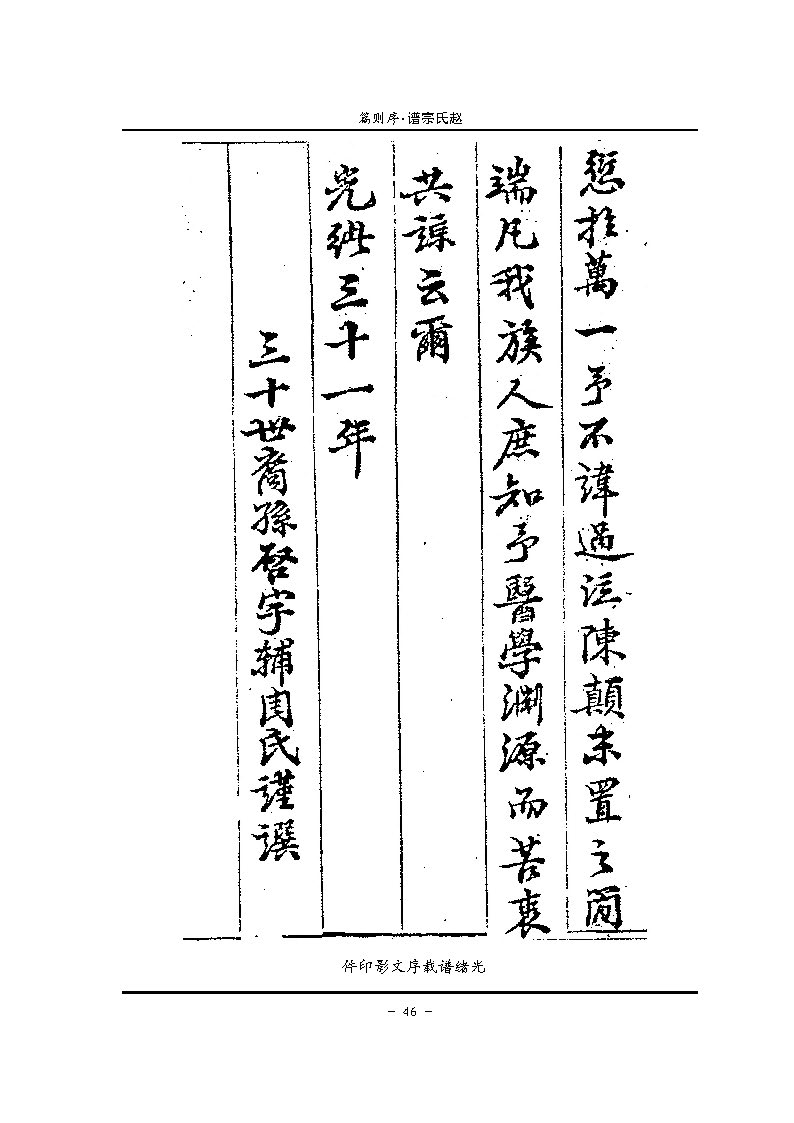 赵氏宗谱·序则篇
愆於萬一予不諱過陳顛末置之簡
端凡我族人庶知予醫學淵源而苦衷
共諒云爾
光緒三十一年
三十世裔孫啓宇輔周氏謹譔
光绪谱载序文影印件
- 46 -